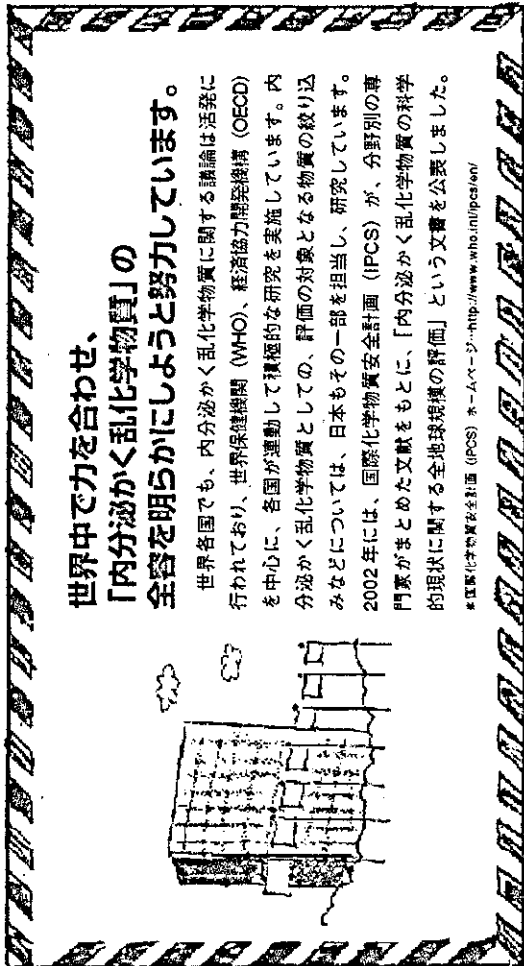 世界中で力を合わせ、
「内分泌かく乱化学物質」の
全容を明らかにしようと努力しています。
世界各国でも、内分泌かく乱化学物質に関する議論は活発に
行われており、世界保健機関（WHO）、経済協力開発機構（OECD）
を中心に、各国が連動して積極的な研究を実施しています。内
分泌かく乱化学物質としての、評価の対象となる物質の絞り込
みなどについては、日本もその一部を担当し、研究しています。
2002年には、国際化学物質安全計画（IPCS）が、分野別の専
門家がまとめた文献をもとに、「内分泌かく乱化学物質の科学
的現状に関する全地球規模の評価」という文書を公表しました。
※国際化学物質安全計画（IPCS）ホームページ…http://www.who.int/ipcs/en/